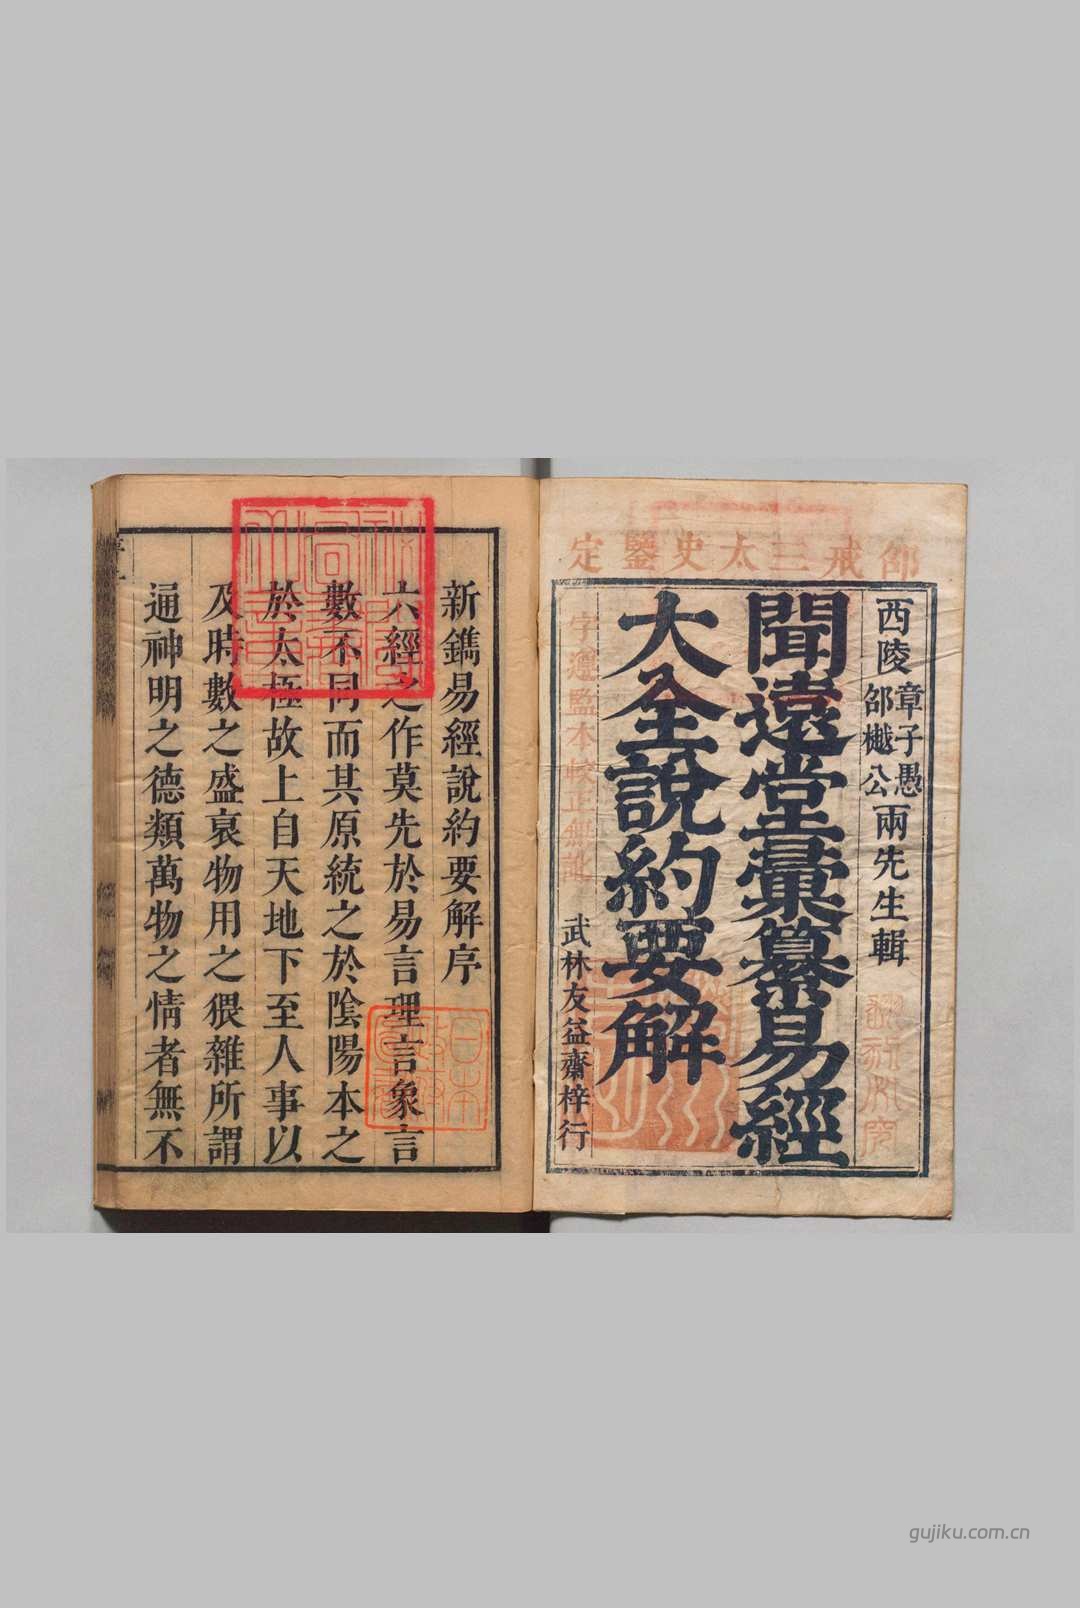 邵戒三太史鑒定
西陵章子愚邵樾公兩先生輯
聞遠堂彙纂易經
大全說約要解
字遵監本校正無訛
武林友益齋梓行
新鐫易經說約要解序
六經之作莫先於易言理言象言
數不同而其原統之於陰陽本之
於太極故上自天地下至人事以
及時數之盛衰物用之猥雜所謂
通神明之德類萬物之情者無不
gujiku.com.cn